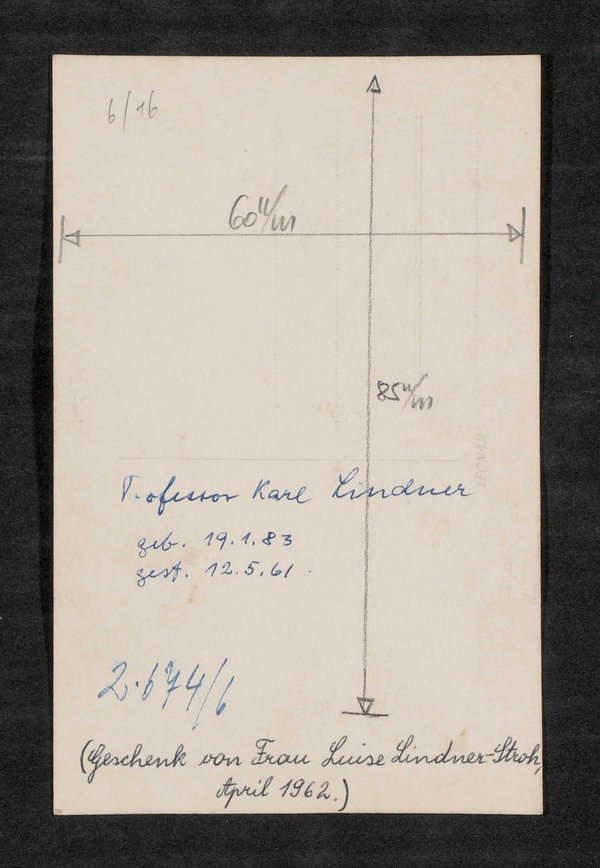 6/16
60 m/m
85 m/m
LEONAR
Professor Karl Lindner
geb. 19.1.83
gest. 12.5.61.
2.674/6
(Geschenk von Frau Luise Lindner-Stroh,
April 1962.)